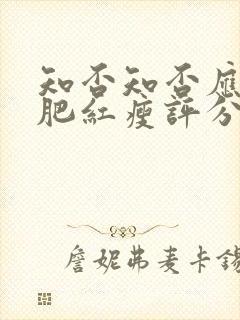 知否知否應
肥紅瘦評分
詹妮弗麦卡錫